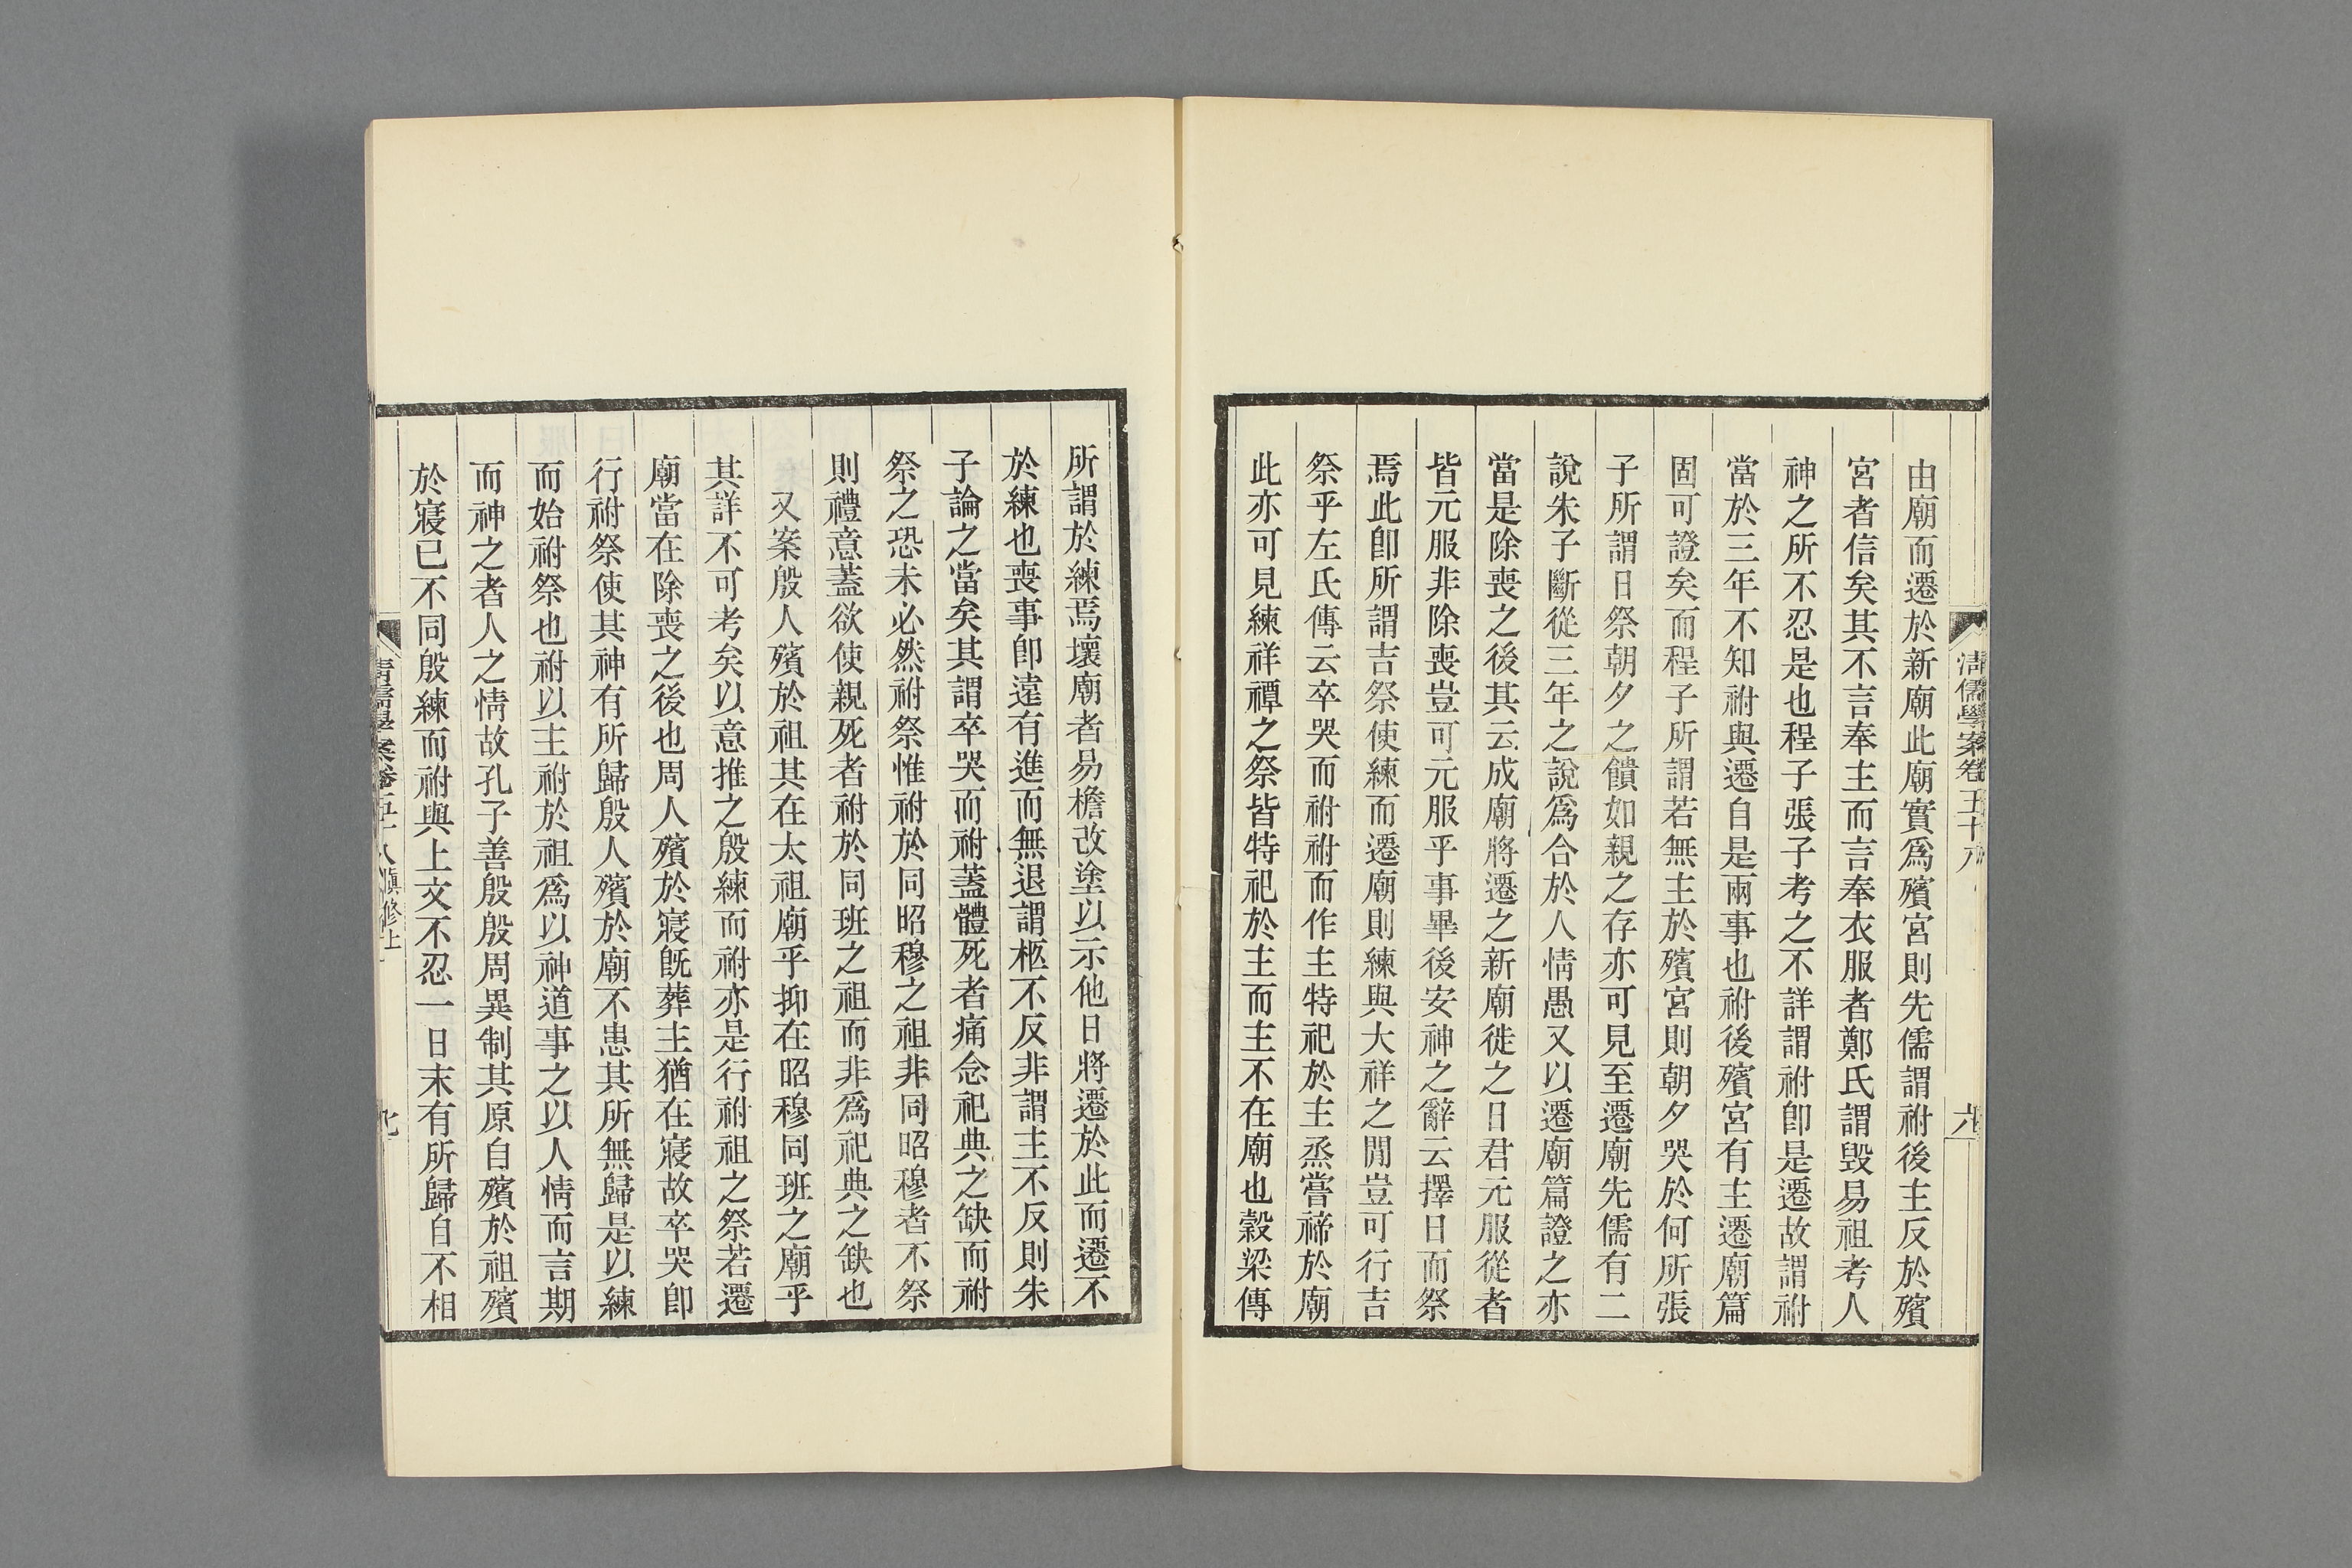 由廟而遷於新廟此廟實爲殯宮則先儒謂祔後主反於殯
宮者信矣其不言奉主而言奉衣服者鄭氏謂毀易祖考人
神之所不忍是也程子張子考之不詳謂祔卽是遷故謂祔
當於三年不知祔與遷自是兩事也祔後殯宮有主遷廟篇
固可證矣而程子所謂若無主於殯宮則朝夕哭於何所張
子所謂日祭朝夕之饋如親之存亦可見至遷廟先儒有二
說朱子斷從三年之說爲合於人情愚又以遷廟篇證之亦
當是除喪之後其云成廟將遷之新廟徙之日君元服從者
皆元服非除喪豈可元服乎事畢後安神之辭云擇日而祭
焉此卽所謂吉祭使練而遷廟則練與大祥之閒豈可行吉
祭乎左氏傳云卒哭而祔祔而作主特祀於主烝嘗禘於廟
此亦可見練祥禫之祭皆特祀於主而主不在廟也穀梁傳
清儒學案卷五十八
六
所謂於練焉壞廟者易檐改塗以示他日將遷於此而遷不
於練也喪事卽遠有進而無退謂柩不反非謂主不反則朱
子論之當矣其謂卒哭而祔蓋體死者痛念祀典之缺而祔
祭之恐未必然祔祭惟祔於同昭穆之祖非同昭穆者不祭
則禮意蓋欲使親死者祔於同班之祖而非爲祀典之缺也
又案殷人殯於祖其在太祖廟乎抑在昭穆同班之廟乎
其詳不可考矣以意推之殷練而祔亦是行祔祖之祭若遷
廟當在除喪之後也周人殯於寢旣葬主猶在寢故卒哭卽
行祔祭使其神有所歸殷人殯於廟不患其所無歸是以練
而始祔祭也祔以主祔於祖爲以神道事之以人情而言期
而神之者人之情故孔子善殷殷周異制其原自殯於祖殯
於寢已不同殷練而祔與上文不忍一日末有所歸自不相
清儒學案卷五十八 愼修上
七